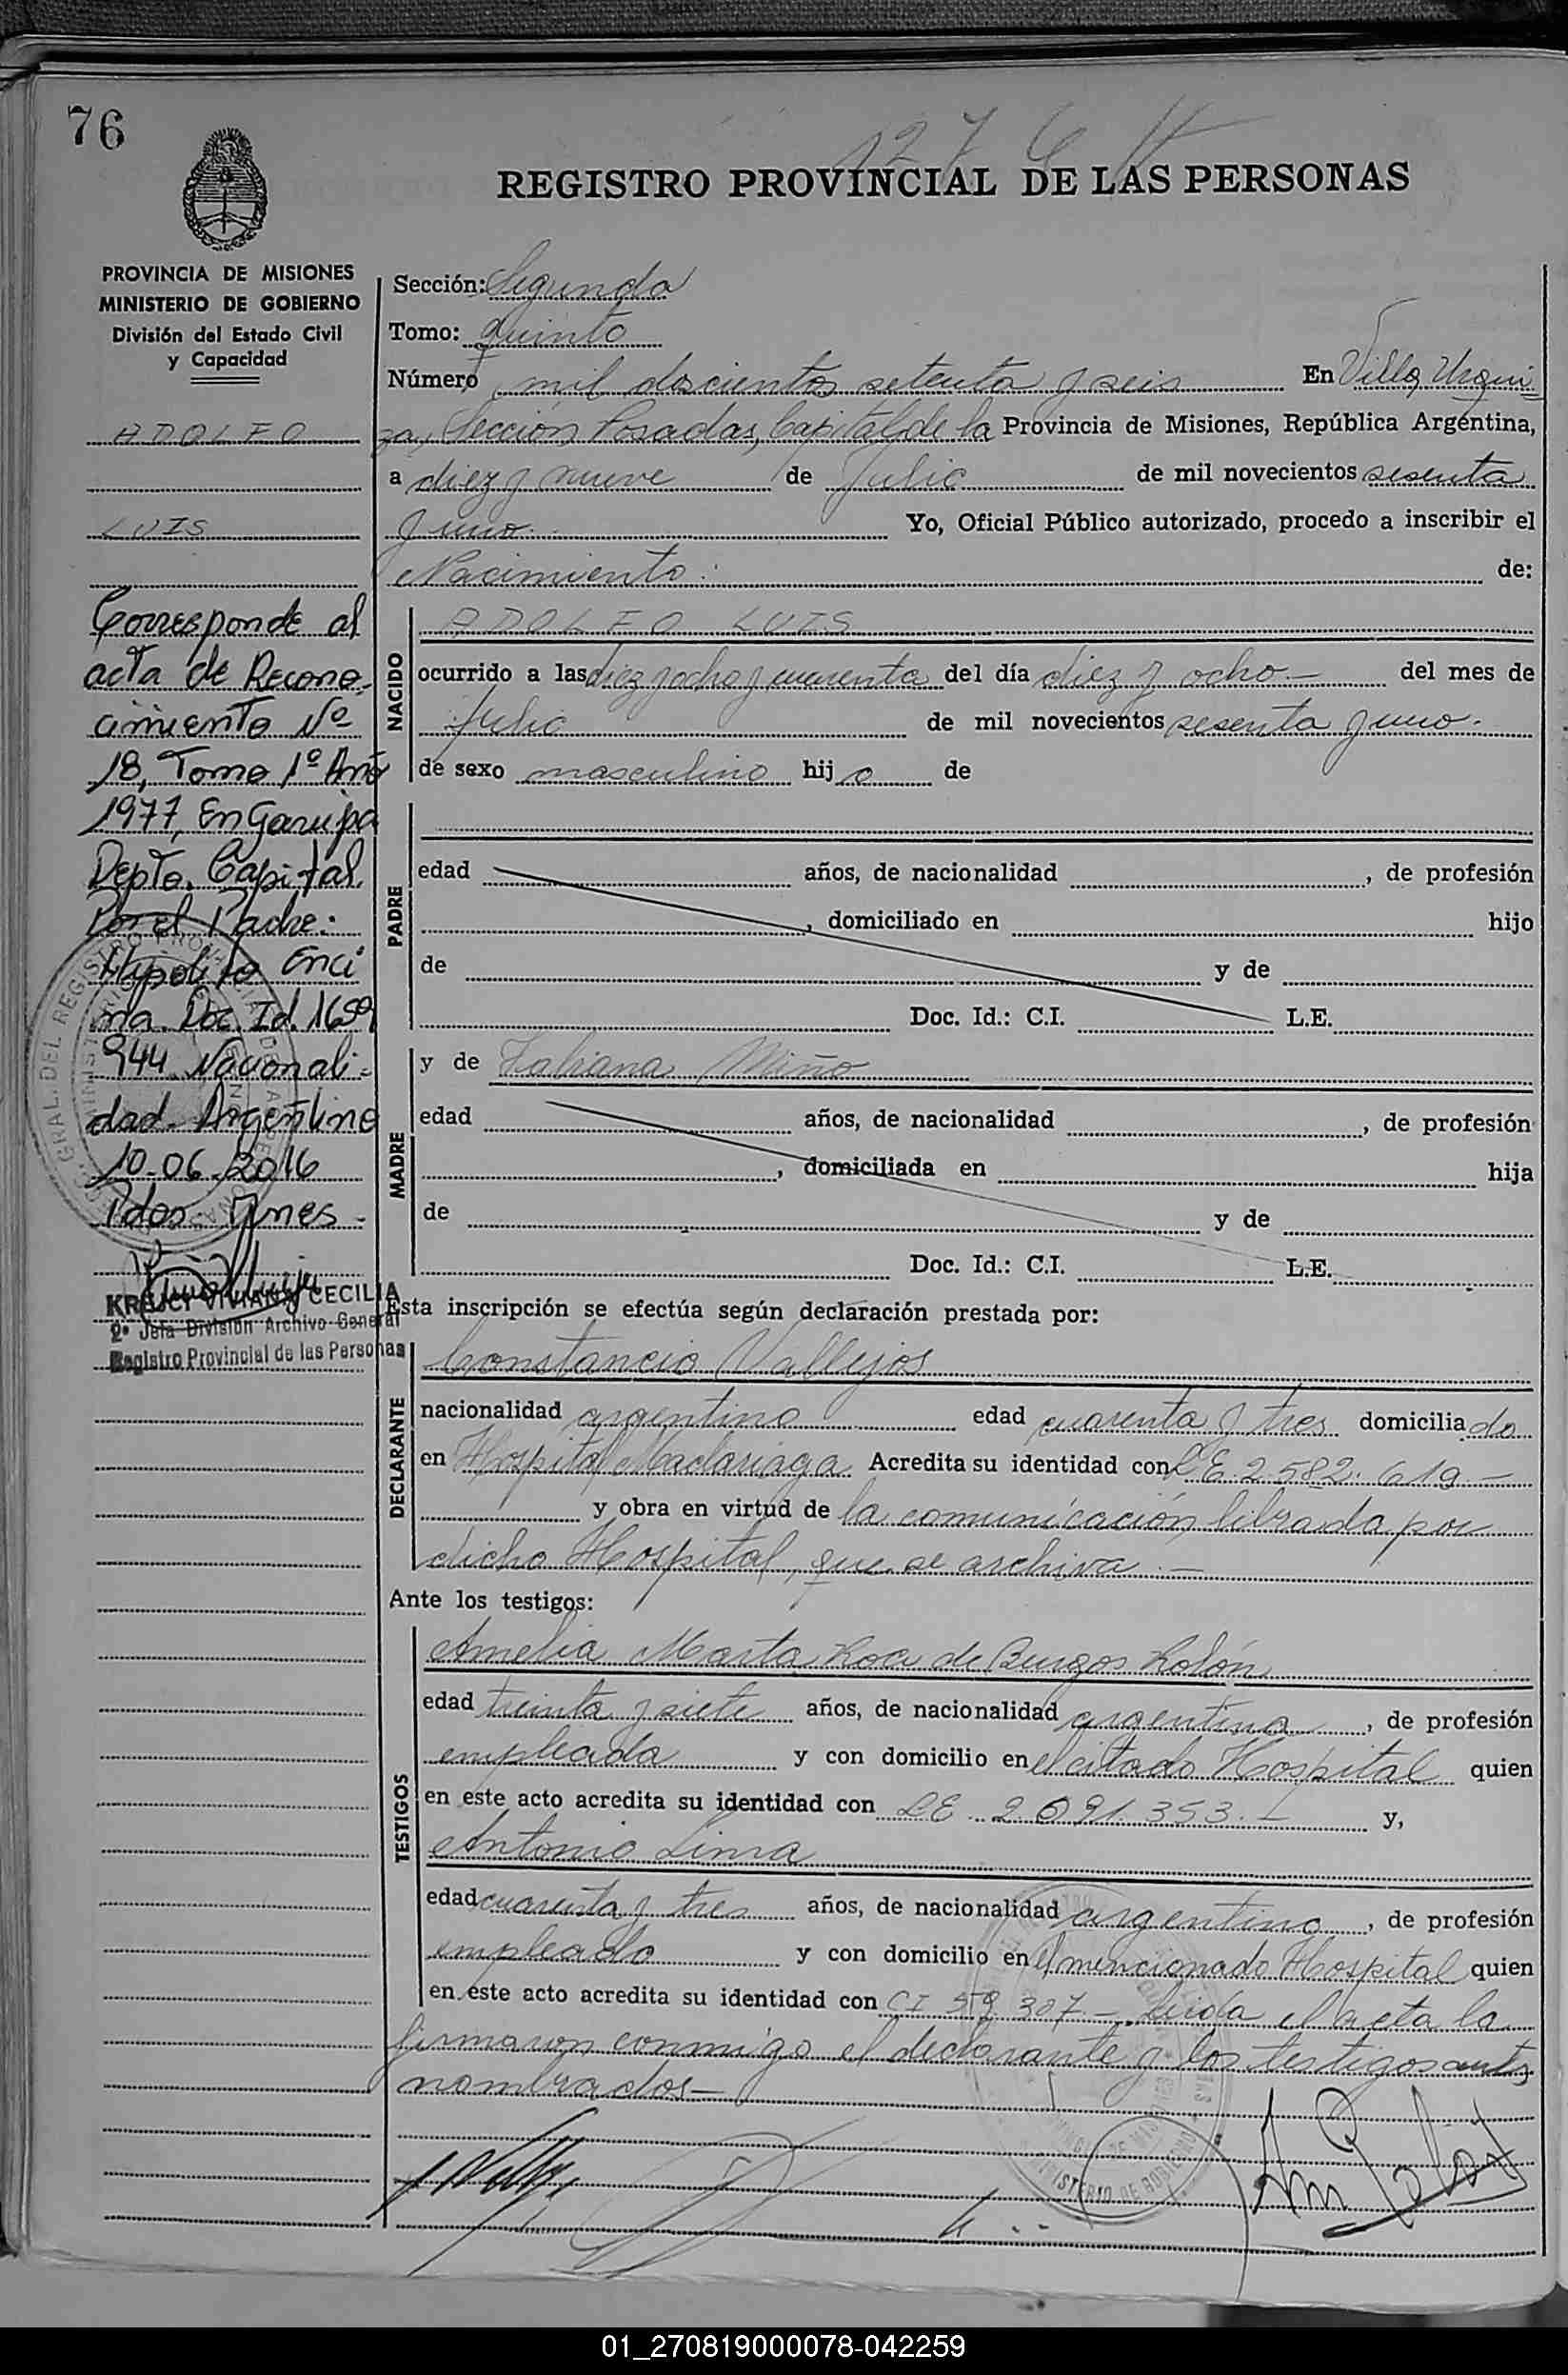 76
1276
REGISTRO PROVINCIAL DE LAS PERSONAS
PROVINCIA DE MISIONES
MINISTERIO DE GOBIERNO
División del Estado Civil
y Capacidad
ADOLFO
LUIS
Corresponde al
acta de Recono-
cimiento Nº
18, Tomo 1º Año
1977, En Garupa
Depto. Capital.
Por el Padre:
Hipolito Enci
na. Doc. Id. 1659
944 Nacionali-
dad. Argentino
10-06-2016
Pdas. Mnes -
KREJCI VIVIANA CECILIA
2º Jefa División Archivo General
Registro Provincial de las Personas
Sección: Segunda
Tomo: quinto
Número mil doscientos setenta y seis En Villa Urqui
za, Sección Posadas, Capital de la Provincia de Misiones, República Argentina,
a diez y nueve de Julio de mil novecientos sesenta
y uno. Yo, Oficial Público autorizado, procedo a inscribir el
Nacimiento: de:
NACIDO
ADOLFO LUIS
ocurrido a las diez y ocho y cuarenta del día diez y ocho.— del mes de
Julio de mil novecientos sesenta y uno.
de sexo masculino hijo de
PADRE
edad años, de nacionalidad , de profesión
, domiciliado en hijo
de y de
Doc. Id.: C.I. L.E.
MADRE
y de Fabiana Miño
edad años, de nacionalidad , de profesión
, domiciliada en hija
de y de
Doc. Id.: C.I. L.E.
Esta inscripción se efectúa según declaración prestada por:
DECLARANTE
Constancio Vallejos
nacionalidad argentino edad cuarenta y tres domiciliado
en Hospital Madariaga. Acredita su identidad con LE 2.582.619.—
y obra en virtud de la comunicación librada por
dicho Hospital, que se archiva.—
Ante los testigos:
TESTIGOS
Amelia Marta Roa de Burgos Rolón
edad treinta y siete años, de nacionalidad argentina, de profesión
empleada y con domicilio en el citado Hospital quien
en este acto acredita su identidad con LE 2.691.353.— y,
Antonio Lima
edad cuarenta y tres años, de nacionalidad argentino, de profesión
empleado y con domicilio en el mencionado Hospital quien
en este acto acredita su identidad con CI 59.307 - Leida el acta la
firmaron conmigo el declarante y los testigos antes
nombrados—
01_270819000078-042259